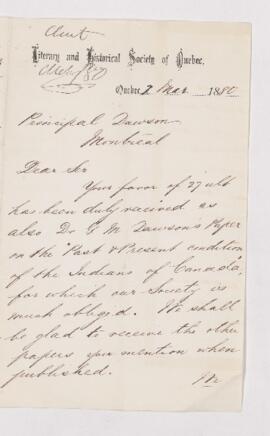 Literary and Historical Society of Quebec.
Quebec 2 Mar 1880
Principal Dawson
Montreal
Dear Sir
Your favor of 27 ult
has been duly received as
also Dr G. M. Dawson's Paper
on the "Past & Present condition
of the Indians of Canada",
for which our Society is
much obliged. We shall
be glad to receive the other
papers you mention when
published.
We